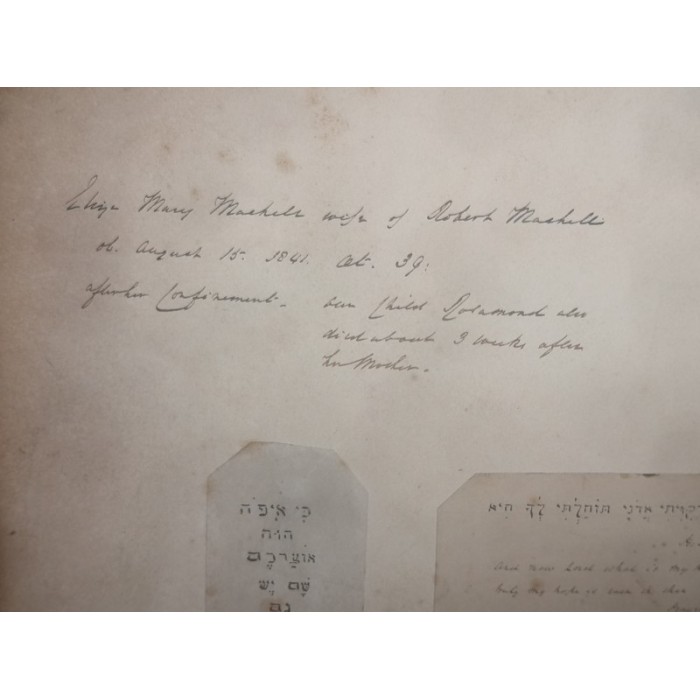 Eliza Mary Maskell wife of Robert Maskell
ob. August 15. 1841. aet. 39:
after her Confinement - her Child Rosamond also
died about 3 weeks after
her Mother.
כִּי אֵיפֹה
הוּה
אוֹצַרְכֶם
שָׁם יֵשׁ
גַם
אֲדֹנָי תּוֹחַלְתִּי לְךָ הִיא
And now Lord what is my
only my hope is even in thee